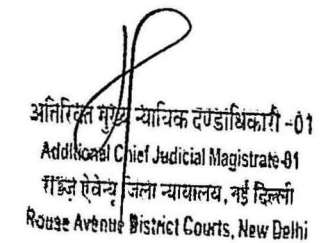 अतिरिक्त मुख्य न्यायिक दण्डाधिकारी -01
Additional Chief Judicial Magistrate-01
राऊज ऐवेन्यू जिला न्यायालय, नई दिल्ली
Rouse Avenue District Courts, New Delhi